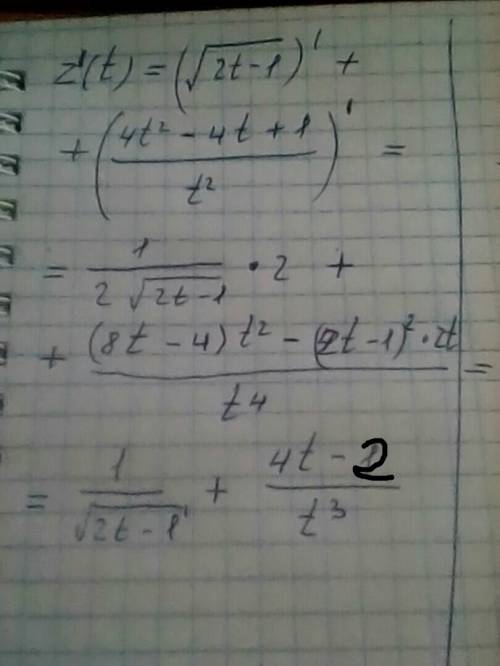 z'(t) = (√(2t-1))' +
+ ((4t² - 4t + 1)/t²)' =
= 1/(2√(2t-1)) · 2 +
+ ((8t - 4)t² - (2t-1)² · 2t)/t⁴ =
= 1/√(2t-1) + (4t-2)/t³